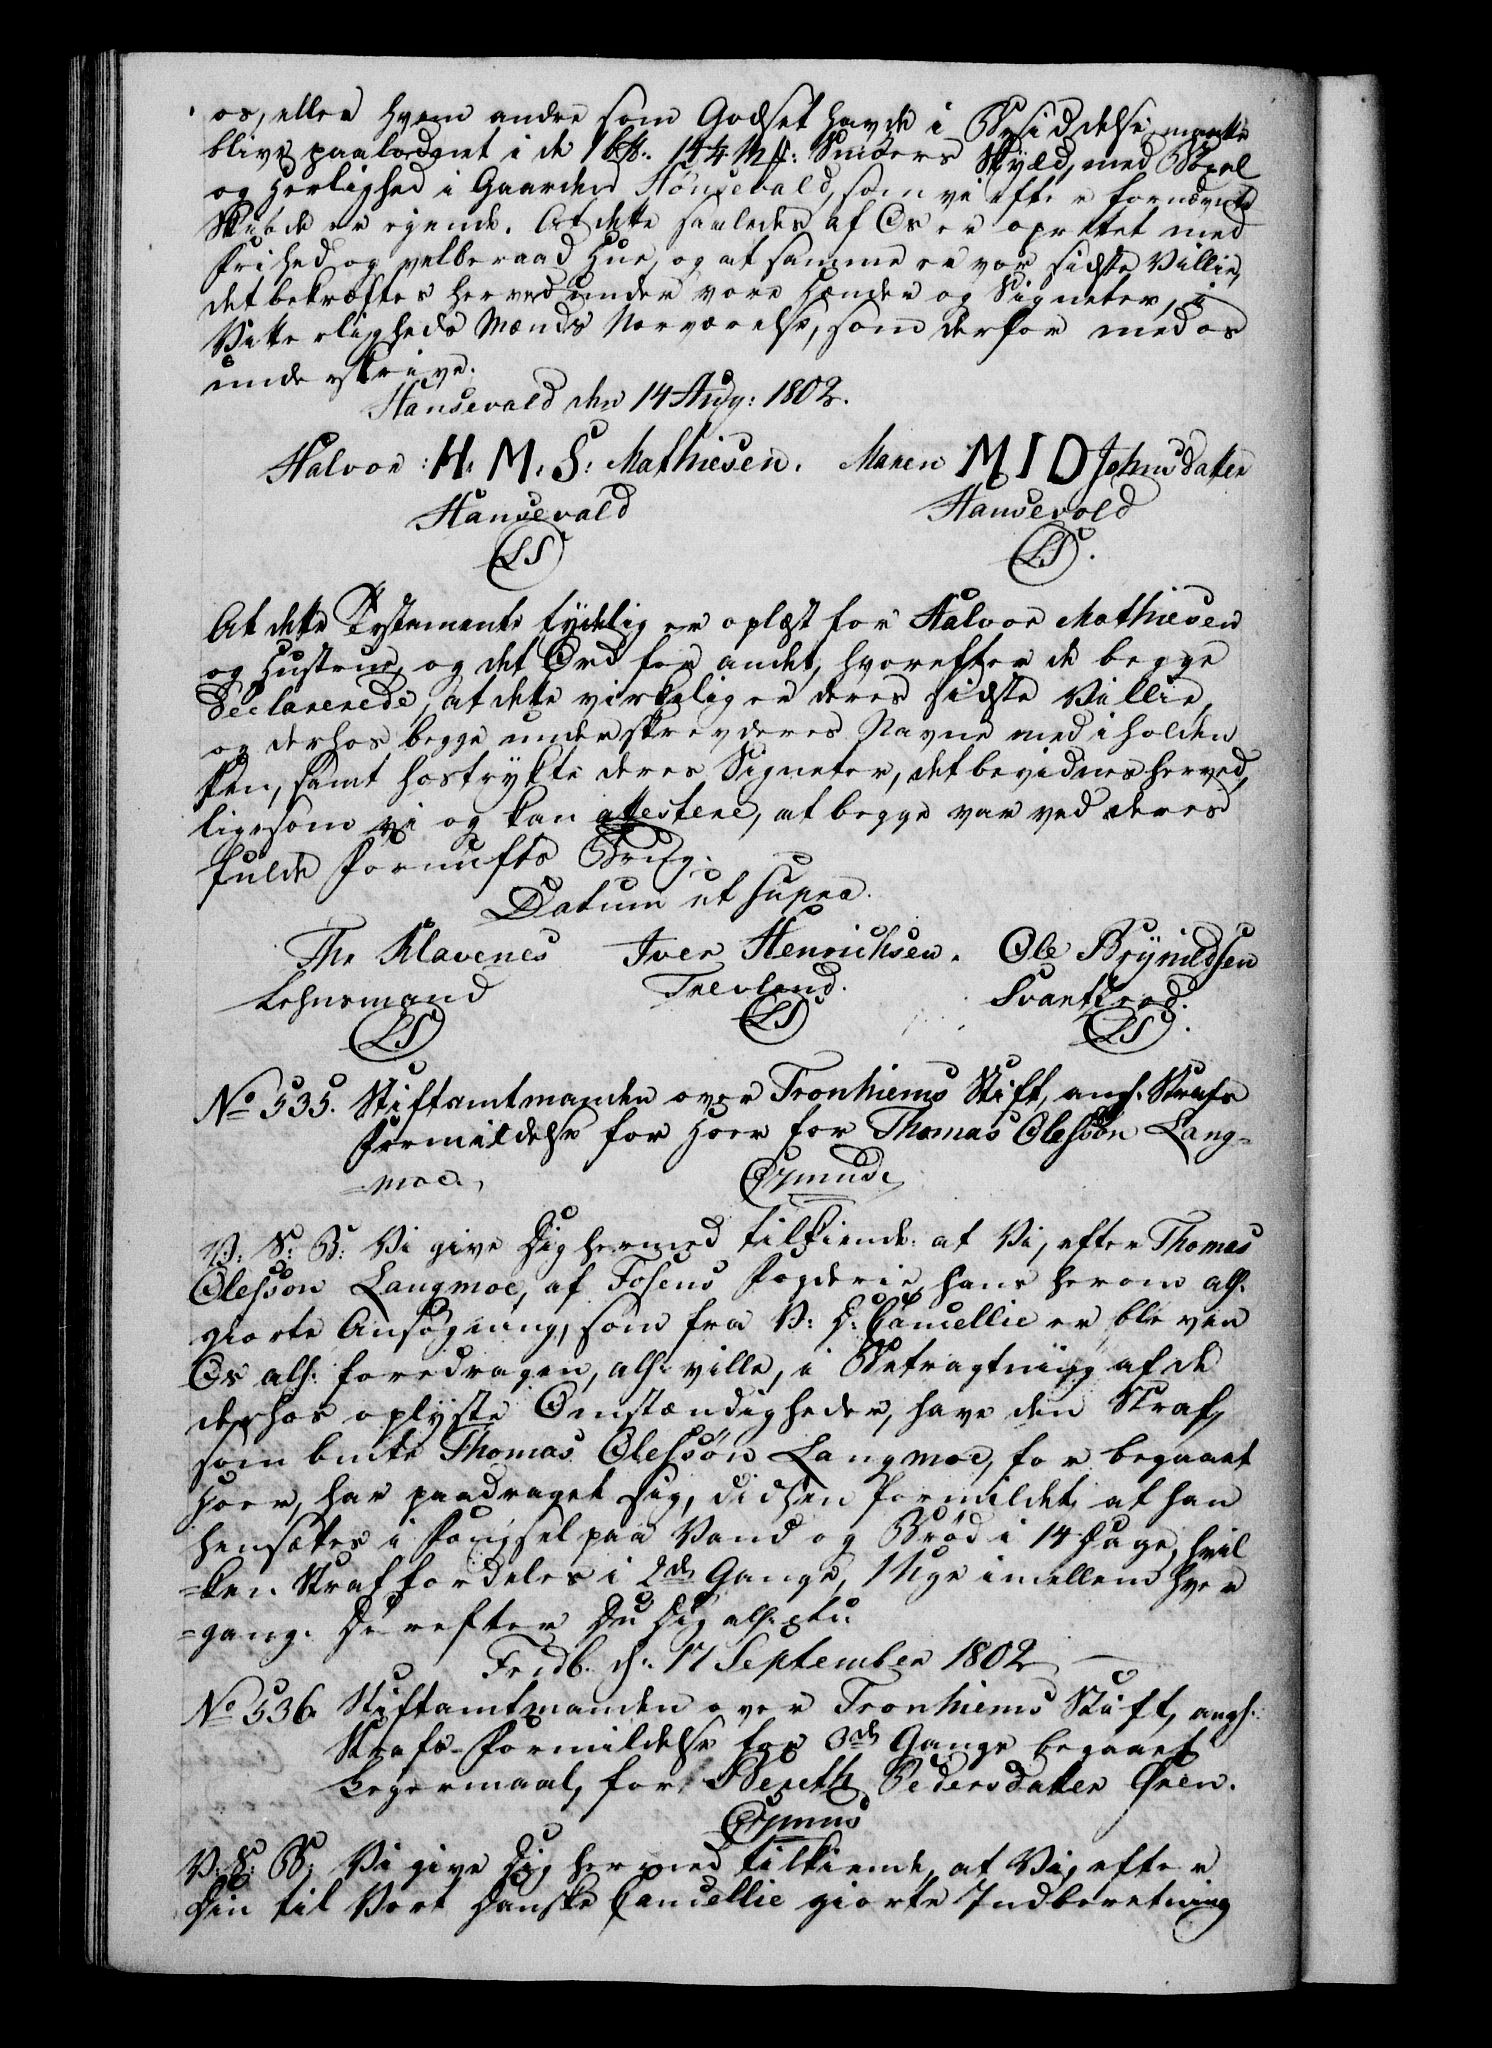 os, eller hvem andre som Godset havde i Besiddelse, maatte
blive paalodnet i de 1 bpd. 14 4 Mk: Smörs Skyld, med Böxel
og Herlighed i Gaarden Hönsevald, som vi efter fornævnte
Skiöde er ejende. At dette saaledes af Os er oprettet med
frihed og velberaad Hue, og at samme er vor sidste Villie,
det bekræftes herved under vore Hænder og Signeter, i
Vitterligheds Mænds Nærværelse, som derfor med os
underskrive.
Hansevald den 14 Aug: 1802.
Halvor :H. M. S: Mathiesen. Maren M I D Johnsdatter
Hansevald Hansevold
LS LS.
At dette Testamente tydelig er oplæst for Halvor Mathiesen
og Hustrue, og det Ord for andet, hvorefter de begge
declarerede, at dette virkelig er deres sidste Villie,
og derhos begge underskrev deres Navne med iholden
Pen, samt hostrykte deres Signeter, det bevidnes herved,
ligesom vi og kan attestere, at begge var ved deres
fulde Fornufts Brug.
Datum ut supra.
Thr Klavenes Iver Henrichsen. Ole Brynildsen
Lehnsmand Trevland. Svartsrod.
LS LS LS.
No 535. Stiftamtmanden over Tronhiems Stift, angl. Strafs
Formildelse for Hoer for Thomas Olessøn Lang=
=moe. Commune
V: S: B: Vi give Dig hermed tilkiende: at Vi, efter Thomas
Olessøn Langmoe, af Fosens Fogderie, hans herom all.
giorte Ansøgning, som fra V: D: Cancellie er bleven
Os all. foredragen, all. ville, i Betragtning af de
derhos oplyste Omstændigheder, have den Straf,
som bmte Thomas Olessøn Langmoe, for begaaet
Hoer, har paadraget sig, didhen formildet, at han
hensættes i Fængsel paa Vand og Brød i 14 Dage, hvil
=ken Straf fordeles i 2de Gange, 1 Uge imellem hver
=gang. Derefter Du Dig all. etc.
Fridb. d. 17 September 1802
No 536. Stiftamtmanden over Tronhiems Stift, angl.
Strafs-Formildelse for 3de Gange begaaet
Leyermaal, for Bereth Pedersdatter Ören.
V: S: B: Vi give Dig hermed tilkiende, at Vi, efter
Din til Vort Danske Cancellie giorte Indberetning